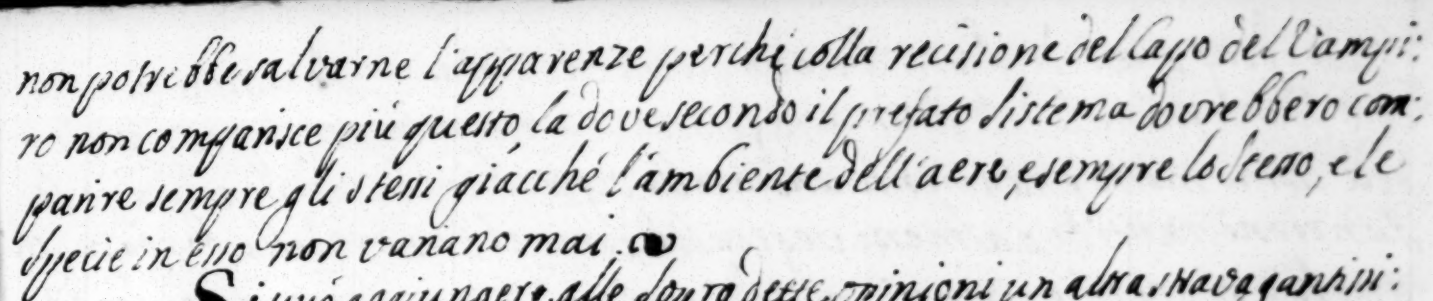 non potrebbe salvarne l'apparenze perchè colla recisione del Capo del Vampi:
ro non comparisce più questo, la dove secondo il prefato sistema dovrebbero com:
parire sempre gli stessi giacché l'ambiente dell'aere, e sempre lo stesso, e le
specie in esso non variano mai.
Si può aggiungere alle sopra dette opinioni un altra stravagantissi: